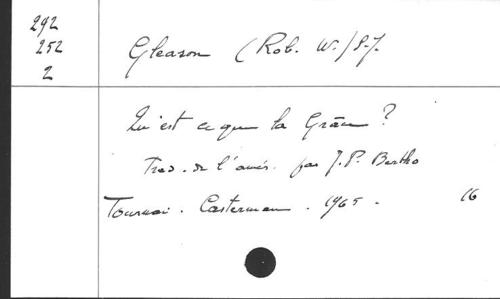 292
252
2
Gleason (Rob. W.) S.J.
Qu'est ce que la Grâce ?
Trad. de l'amér. par J.P. Bertho
Tournai. Casterman. 1965. 16